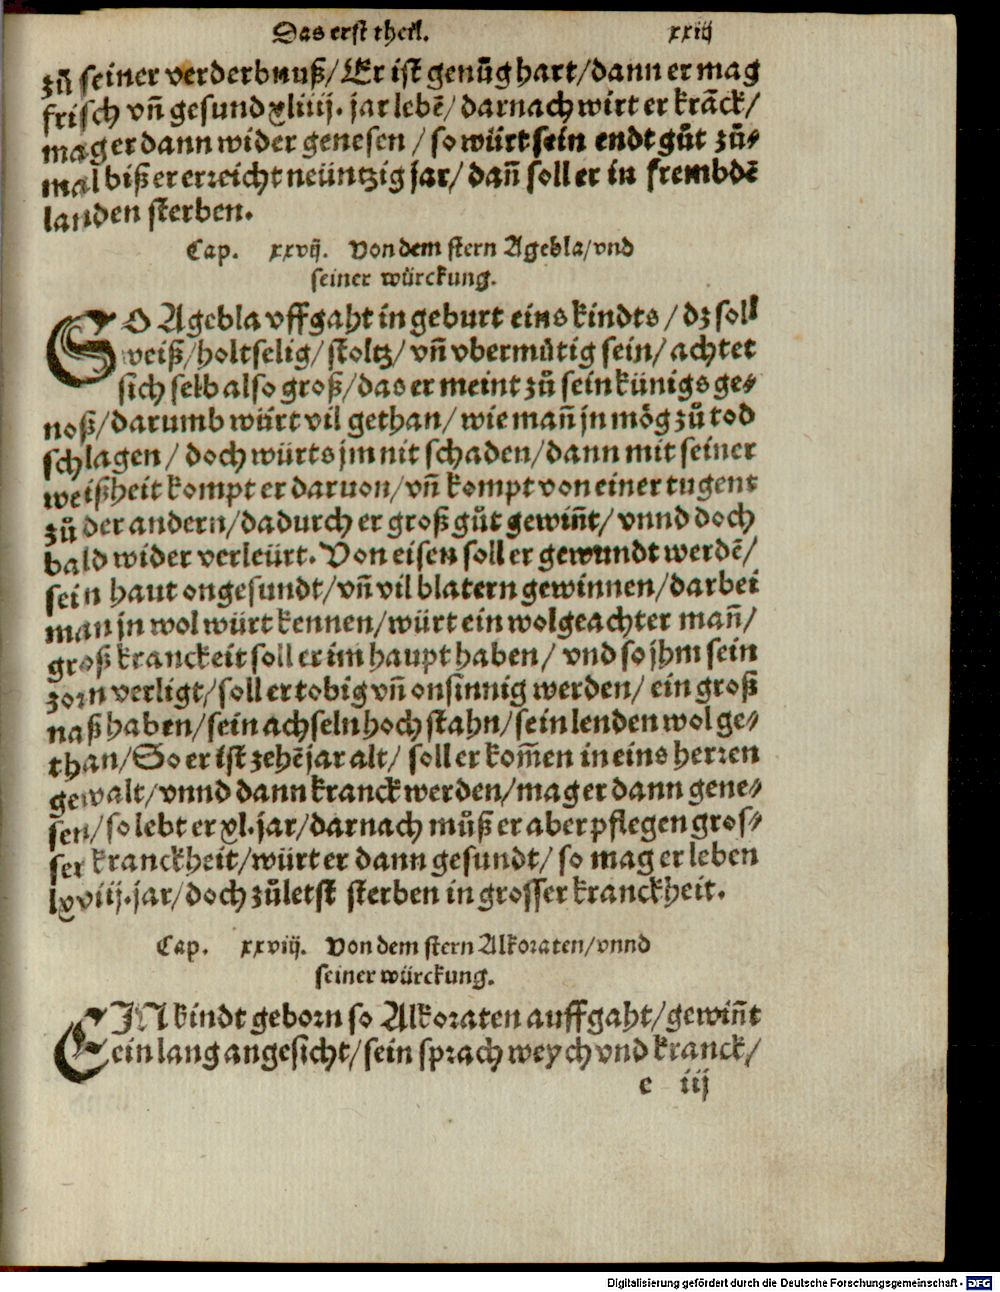 Das erst theil. xxiij
zů seiner verderbnuß/Er ist genůg hart/dann er mag
frisch vñ gesund xliiij. jar lebē/darnach wirt er krāck/
mag er dann wider genesen/so würt sein endt gůt zů-
mal biß er erreicht neüntzig jar/dañ soll er in frembdē
landen sterben.
Cap. xxvij. Von dem stern Agebla/vnd
seiner würckung.
SO Agebla vffgaht in geburt eins kindts/dz soll
weiß/holtselig/stoltz/vñ vbermůtig sein/achtet
sich selb also groß/das er meint zů sein künigs ge-
noß/darumb würt vil gethan/wie mañ jn mög zů tod
schlagen/doch würts jm nit schaden/dann mit seiner
weißheit kompt er daruon/vñ kompt von einer tugent
zů der andern/dadurch er groß gůt gewiñt/vnnd doch
bald wider verleürt. Von eisen soll er gewundt werdē/
sein haut ongesundt/vñ vil blatern gewinnen/darbei
man jn wol würt kennen/würt ein wolgeachter mañ/
groß kranckeit soll er im haupt haben/vnd so jhm sein
zorn verligt/soll er tobig vñ onsinnig werden/ein groß
naß haben/sein achseln hoch stahn/sein lenden wol ge-
than/So er ist zehē jar alt/soll er kom̄en in eins herren
gewalt/vnnd dann kranck werden/mag er dann gene-
sen/so lebt er xl. jar/darnach můß er aber pflegen gros-
ser kranckheit/würt er dann gesundt/so mag er leben
lxviij. jar/doch zůletst sterben in grosser kranckheit.
Cap. xxviij. Von dem stern Alkoraten/vnnd
seiner würckung.
EIN kindt geborn so Alkoraten auffgaht/gewiñt
ein lang angesicht/sein sprach weych vnd kranck/
c iij
Digitalisierung gefördert durch die Deutsche Forschungsgemeinschaft - DFG